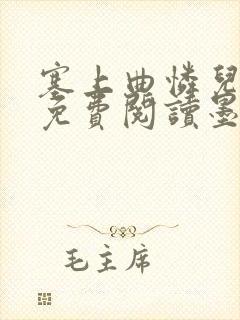 塞上曲憐兒
免費閱讀墨
毛主席